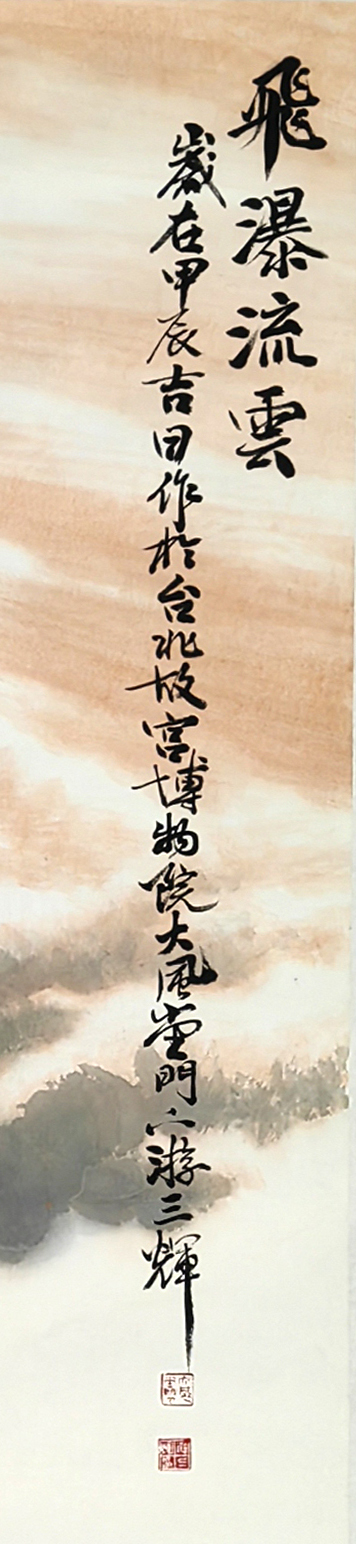 飛瀑流雲
歲在甲辰吉日作於台北故宮博物院大風堂門下游三輝